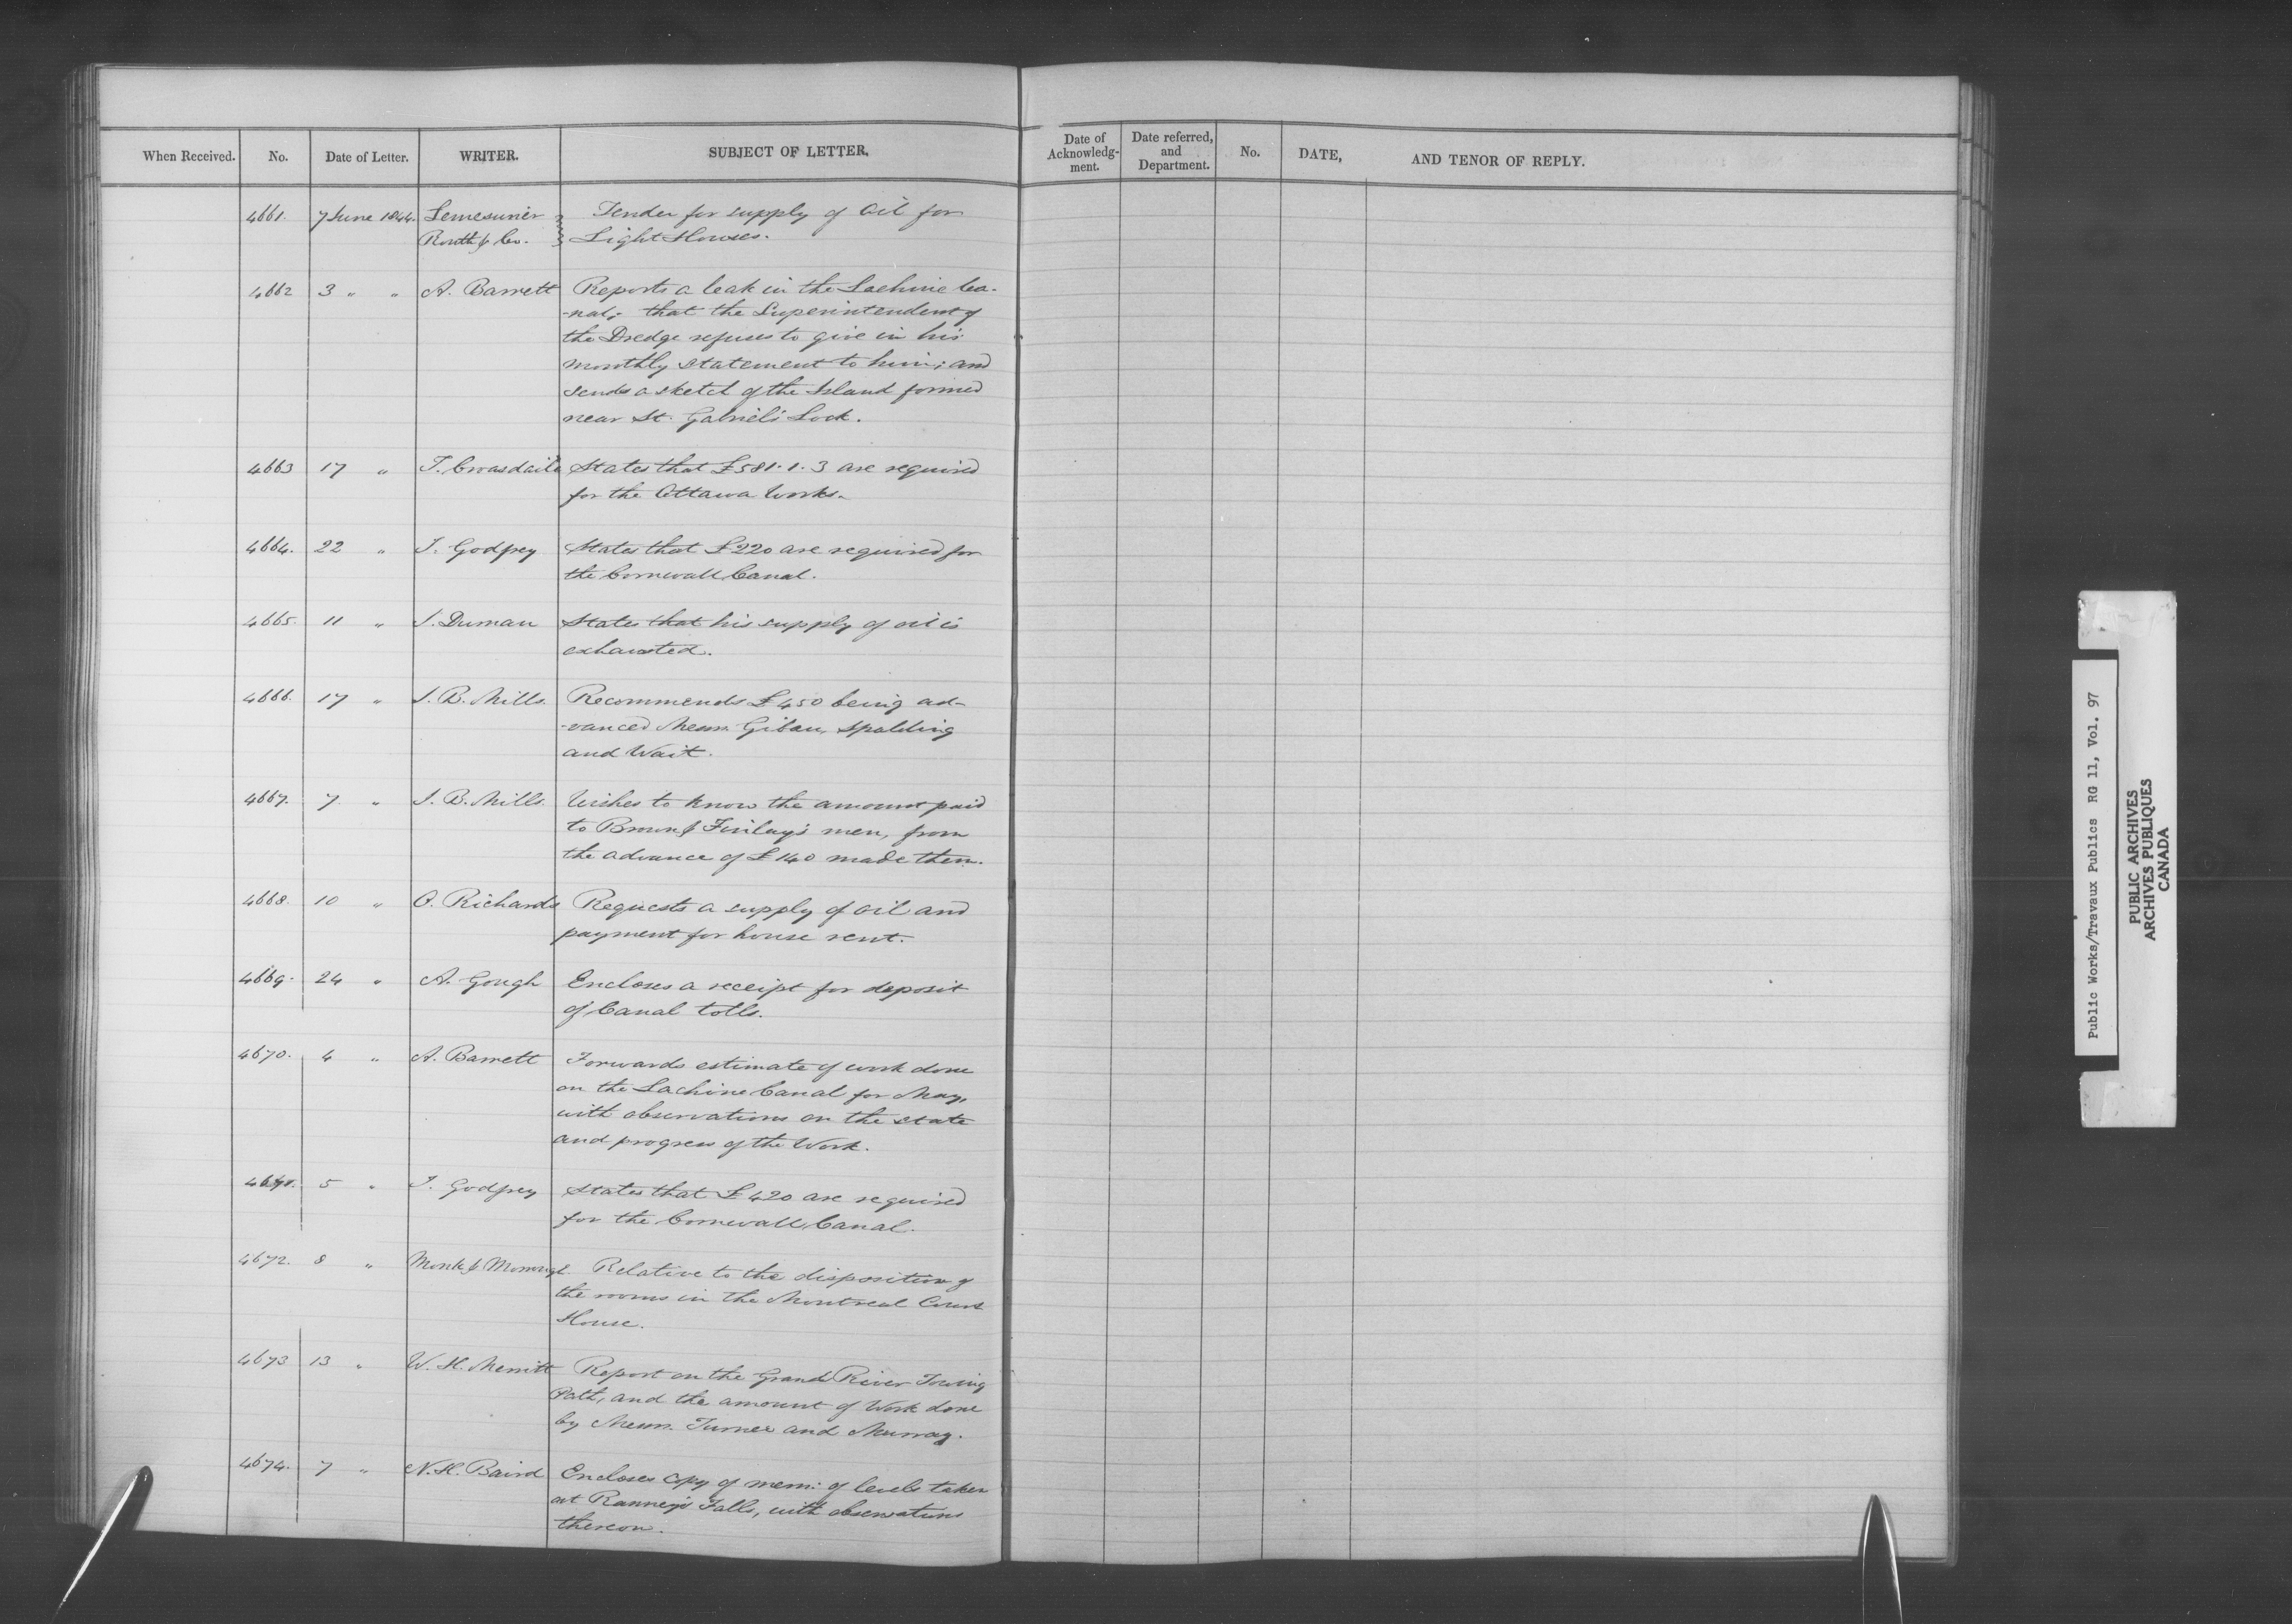 When Received. No. Date of Letter. WRITER. SUBJECT OF LETTER.
Date of Acknowledg-ment. Date referred, and Department. No. DATE, AND TENOR OF REPLY.
4661. 7 June 1844. Lemesurier Tender for supply of Oil for
Routh & Co. Light Houses.
4662 3 " " A. Barrett Reports a leak in the Lachine Ca-
-nal; that the Superintendent of
the Dredge refuses to give in his
monthly statement to him; and
sends a sketch of the Island formed
near St. Gabriel's Lock.
4663 17 " T. Croasdaile States that £581.1.3 are required
for the Ottawa Works.
4664. 22 " J. Godfrey States that £220 are required for
the Cornwall Canal.
4665. 11 " J. Duman States that his supply of oil is
exhausted.
4666. 17 " J. B. Mills. Recommends £450 being ad-
-vanced Messrs. Gibau, Spalding
and Wait.
4667. 7 " J. B. Mills. Wishes to know the amount paid
to Brown & Finlay's men, from
the advance of £140 made them.
4668. 10 " O. Richards Requests a supply of oil and
payment for house rent.
4669. 24 " A. Gough Encloses a receipt for deposit
of Canal tolls.
4670. 4 " A. Barrett Forwards estimate of work done
on the Lachine Canal for May,
with observations on the state
and progress of the Work.
4671. 5 " J. Godfrey States that £420 are required
for the Cornwall Canal.
4672. 8 " Monk & Morrogh Relative to the disposition of
the rooms in the Montreal Court
House.
4673 13 " W. H. Merritt Report on the Grand River Towing
Path, and the amount of Work done
by Messrs. Turner and Murray.
4674. 7 " N. H. Baird Encloses copy of mem: of levels taken
at Ranney's Falls, with observations
thereon.
Public Works/Travaux Publics RG 11, Vol. 97
PUBLIC ARCHIVES
ARCHIVES PUBLIQUES
CANADA